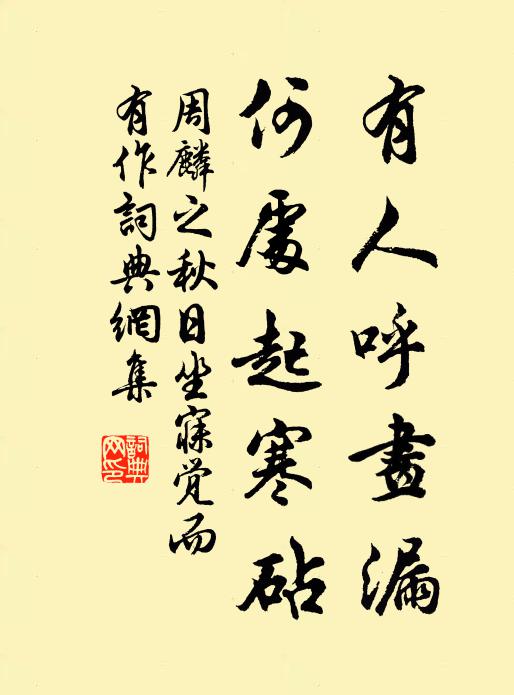 有人呼畫漏
何處起寒砧
周麟之秋日坐寐觉而
有作詞典網集
詞典网印